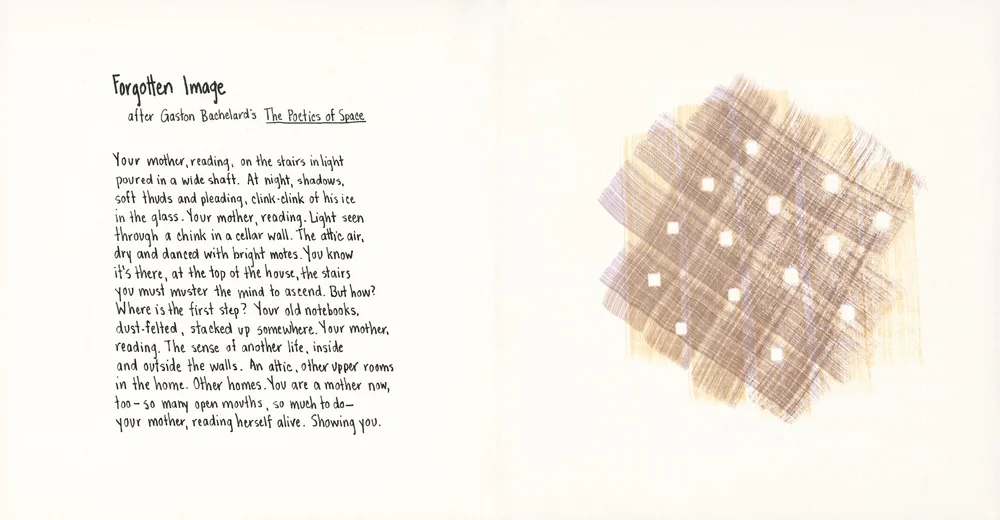 Forgotten Image
after Gaston Bachelard's The Poetics of Space
Your mother, reading, on the stairs in light
poured in a wide shaft. At night, shadows,
soft thuds and pleading, clink-clink of his ice
in the glass. Your mother, reading. Light seen
through a chink in a cellar wall. The attic air,
dry and danced with bright motes. You know
it's there, at the top of the house, the stairs
you must muster the mind to ascend. But how?
Where is the first step? Your old notebooks,
dust-felted, stacked up somewhere. Your mother,
reading. The sense of another life, inside
and outside the walls. An attic, other upper rooms
in the home. Other homes. You are a mother now,
too—so many open mouths, so much to do—
your mother, reading herself alive. Showing you.